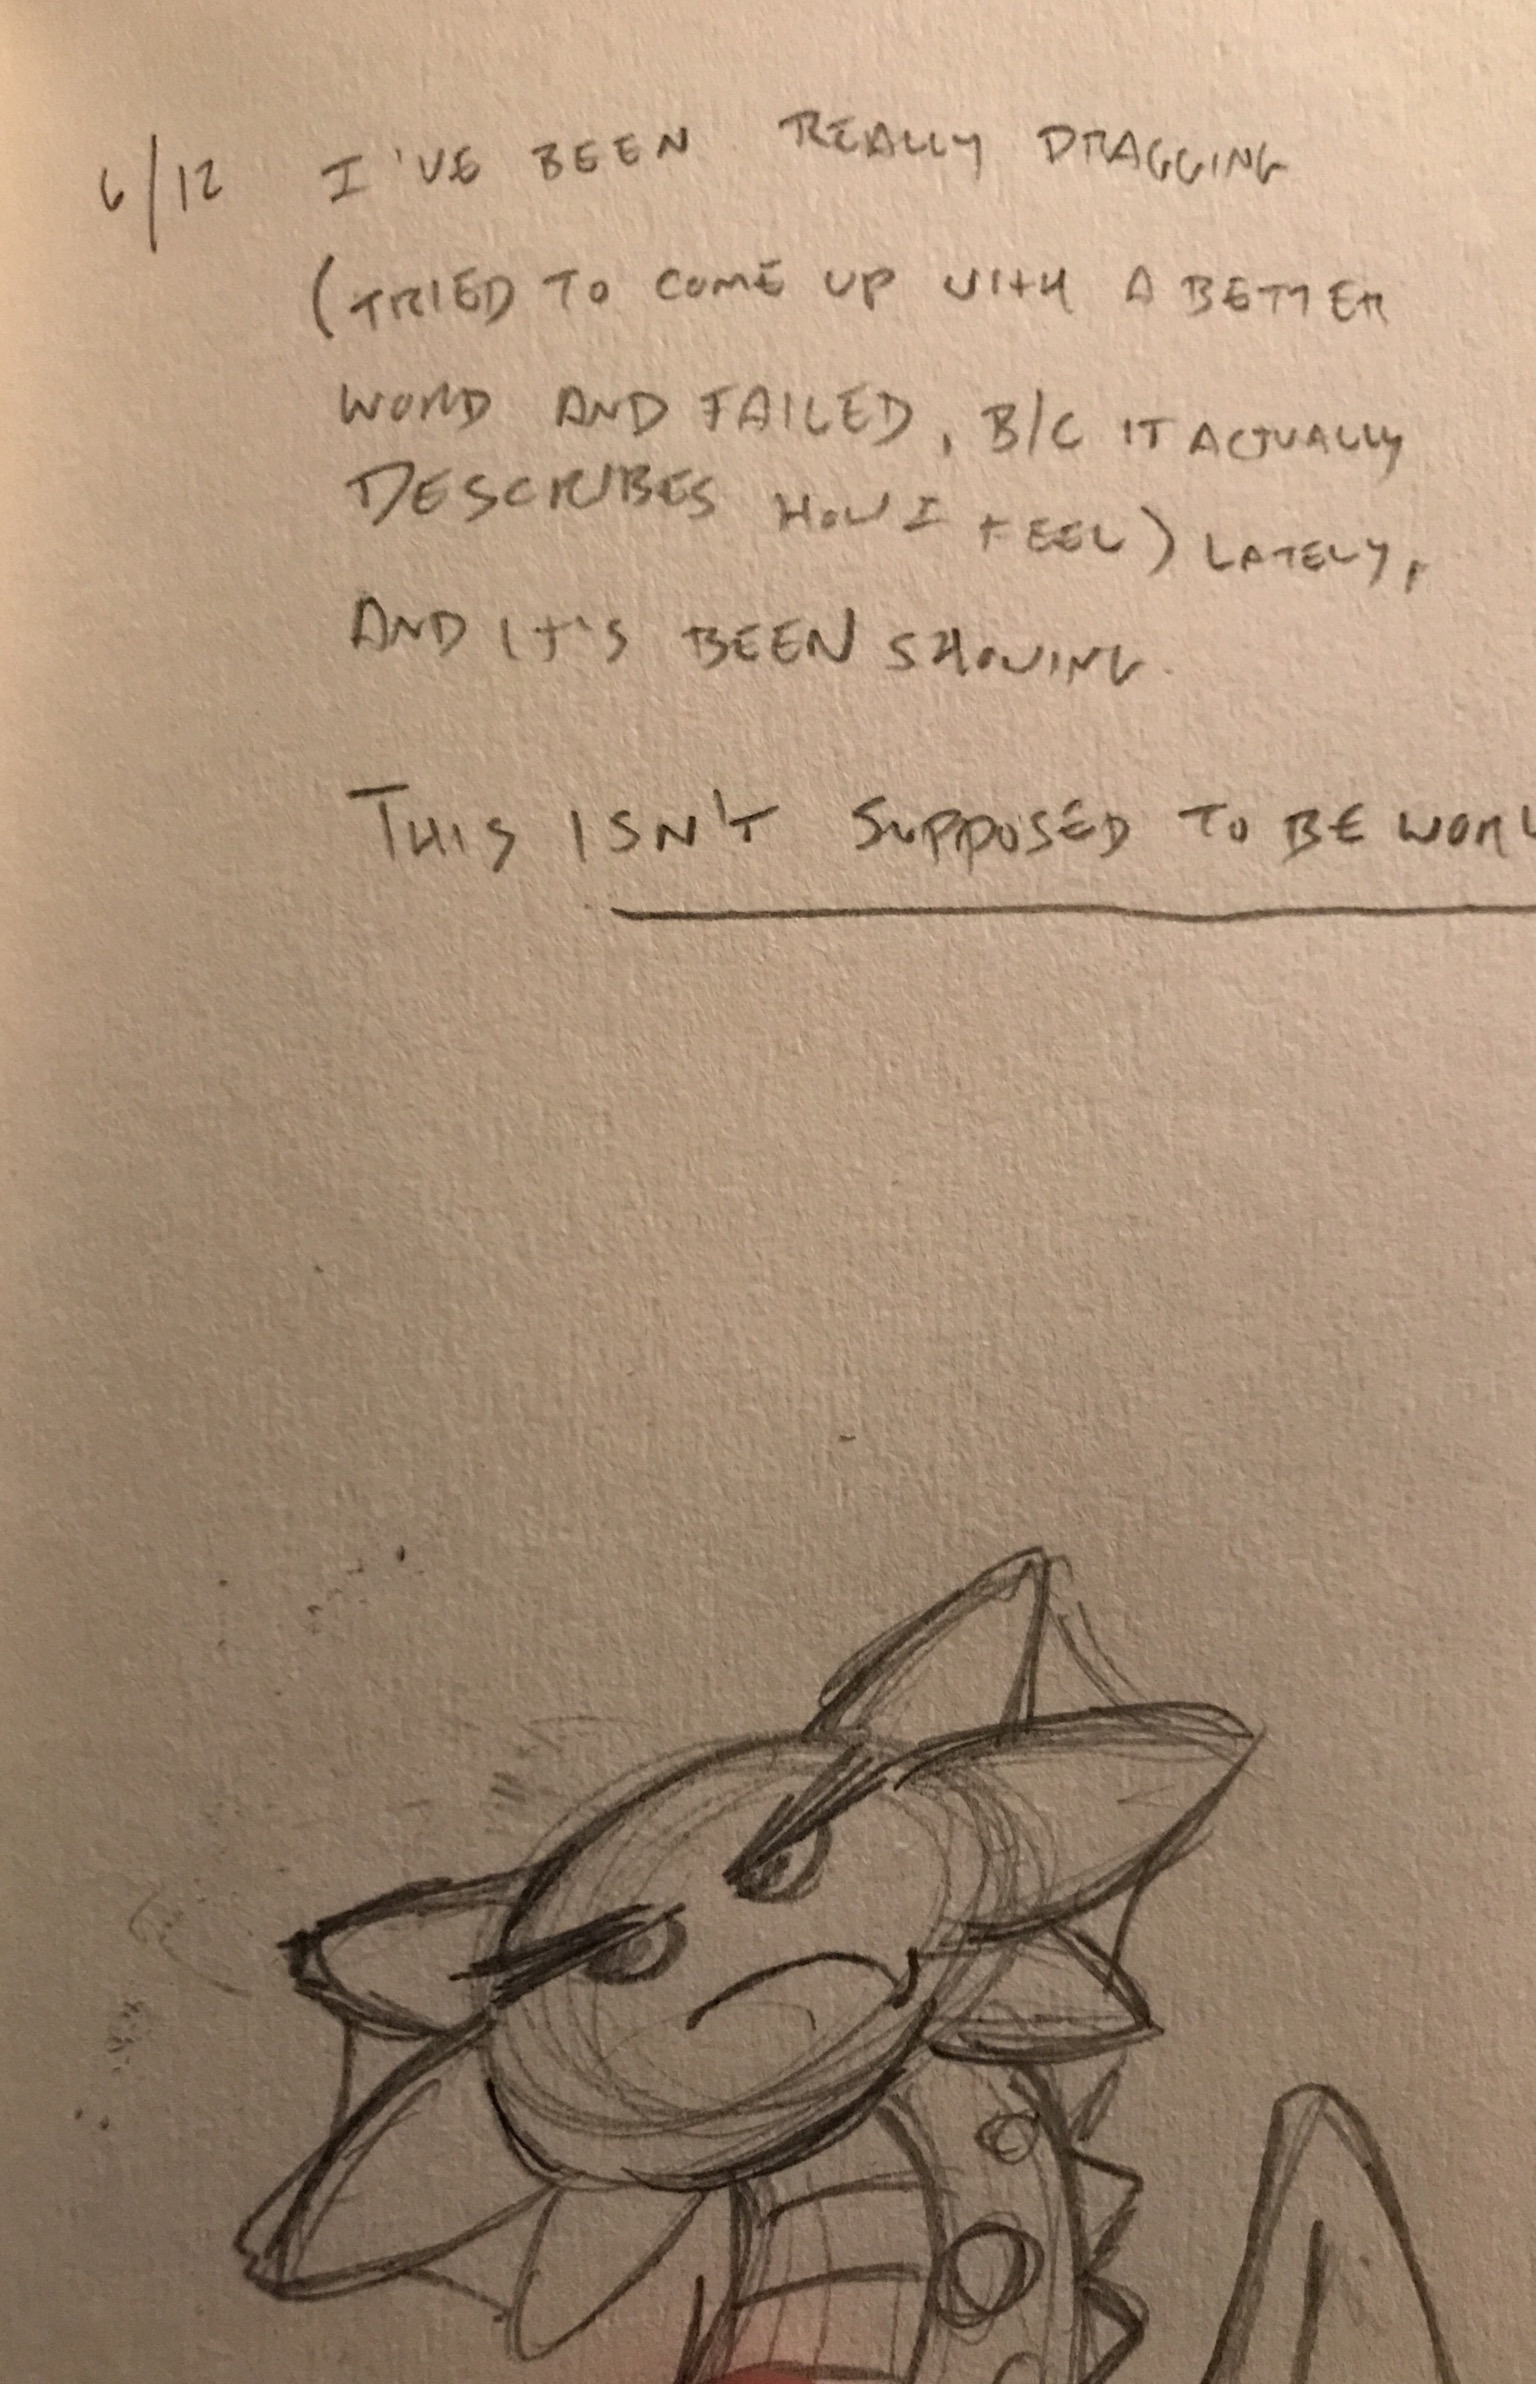 6/12 I'VE BEEN REALLY DRAGGING
(TRIED TO COME UP WITH A BETTER
WORD AND FAILED, B/C IT ACTUALLY
DESCRIBES HOW I FEEL) LATELY,
AND IT'S BEEN SHOWING.
THIS ISN'T SUPPOSED TO BE